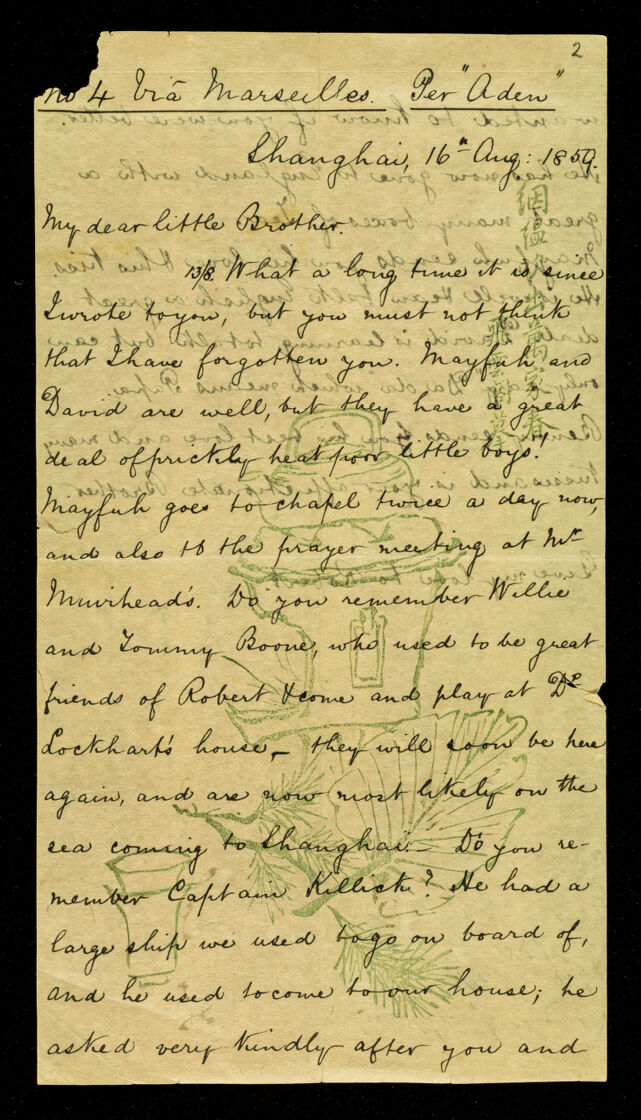 2
No 4 Viâ Marseilles. Per "Aden"
Shanghai, 16th Aug: 1859.
My dear little Brother.
13/8. What a long time it is since
I wrote to you, but you must not think
that I have forgotten you. Mayfuh and
David are well, but they have a great
deal of prickly heat poor little boys!
Mayfuh goes to chapel twice a day now,
and also to the prayer meeting at Mr
Muirhead's. Do you remember Willie
and Tommy Boone, who used to be great
friends of Robert & come and play at Dr
Lockhart's house,– they will soon be here
again, and are now most likely on the
sea coming to Shanghai.– Do you re-
member Captain Killick? He had a
large ship we used to go on board of,
and he used to come to our house; he
asked very kindly after you and